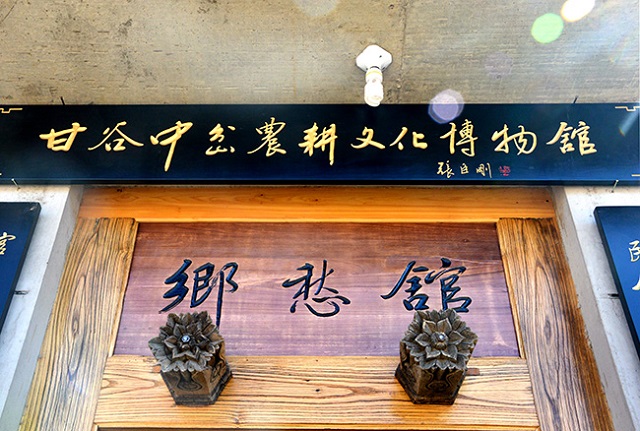 甘谷中岔農耕文化博物館
張臣剛
鄉愁館
館